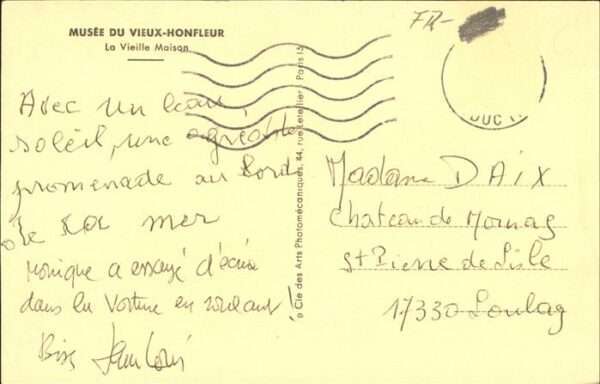 MUSÉE DU VIEUX-HONFLEUR
La Vieille Maison
Avec un beau
soleil, une agréable
promenade au bord
de la mer
Monique a essayé d'écrire
dans la voiture en roulant !
Bises Jean Louis
© Cie des Arts Photomécaniques, 44, rue Letellier, Paris 15
Madame DAIX
Chateau de Mornag
St Pierre de l'Isle
17330 Loulay